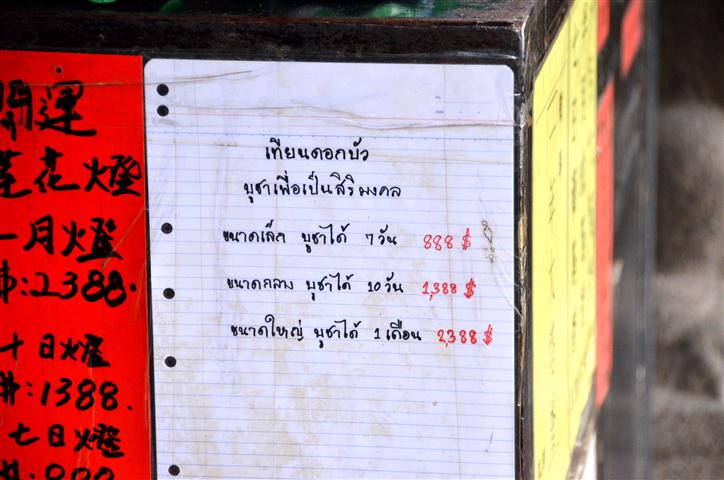 開運
蓮花燈
一月燈
:2388.
十日燈
:1388.
七日燈
เทียนดอกบัว
บูชาเพื่อเป็นสิริมงคล
ขนาดเล็ก บูชาได้ 7 วัน 888 $
ขนาดกลาง บูชาได้ 10 วัน 1,388 $
ขนาดใหญ่ บูชาได้ 1 เดือน 2,388 $